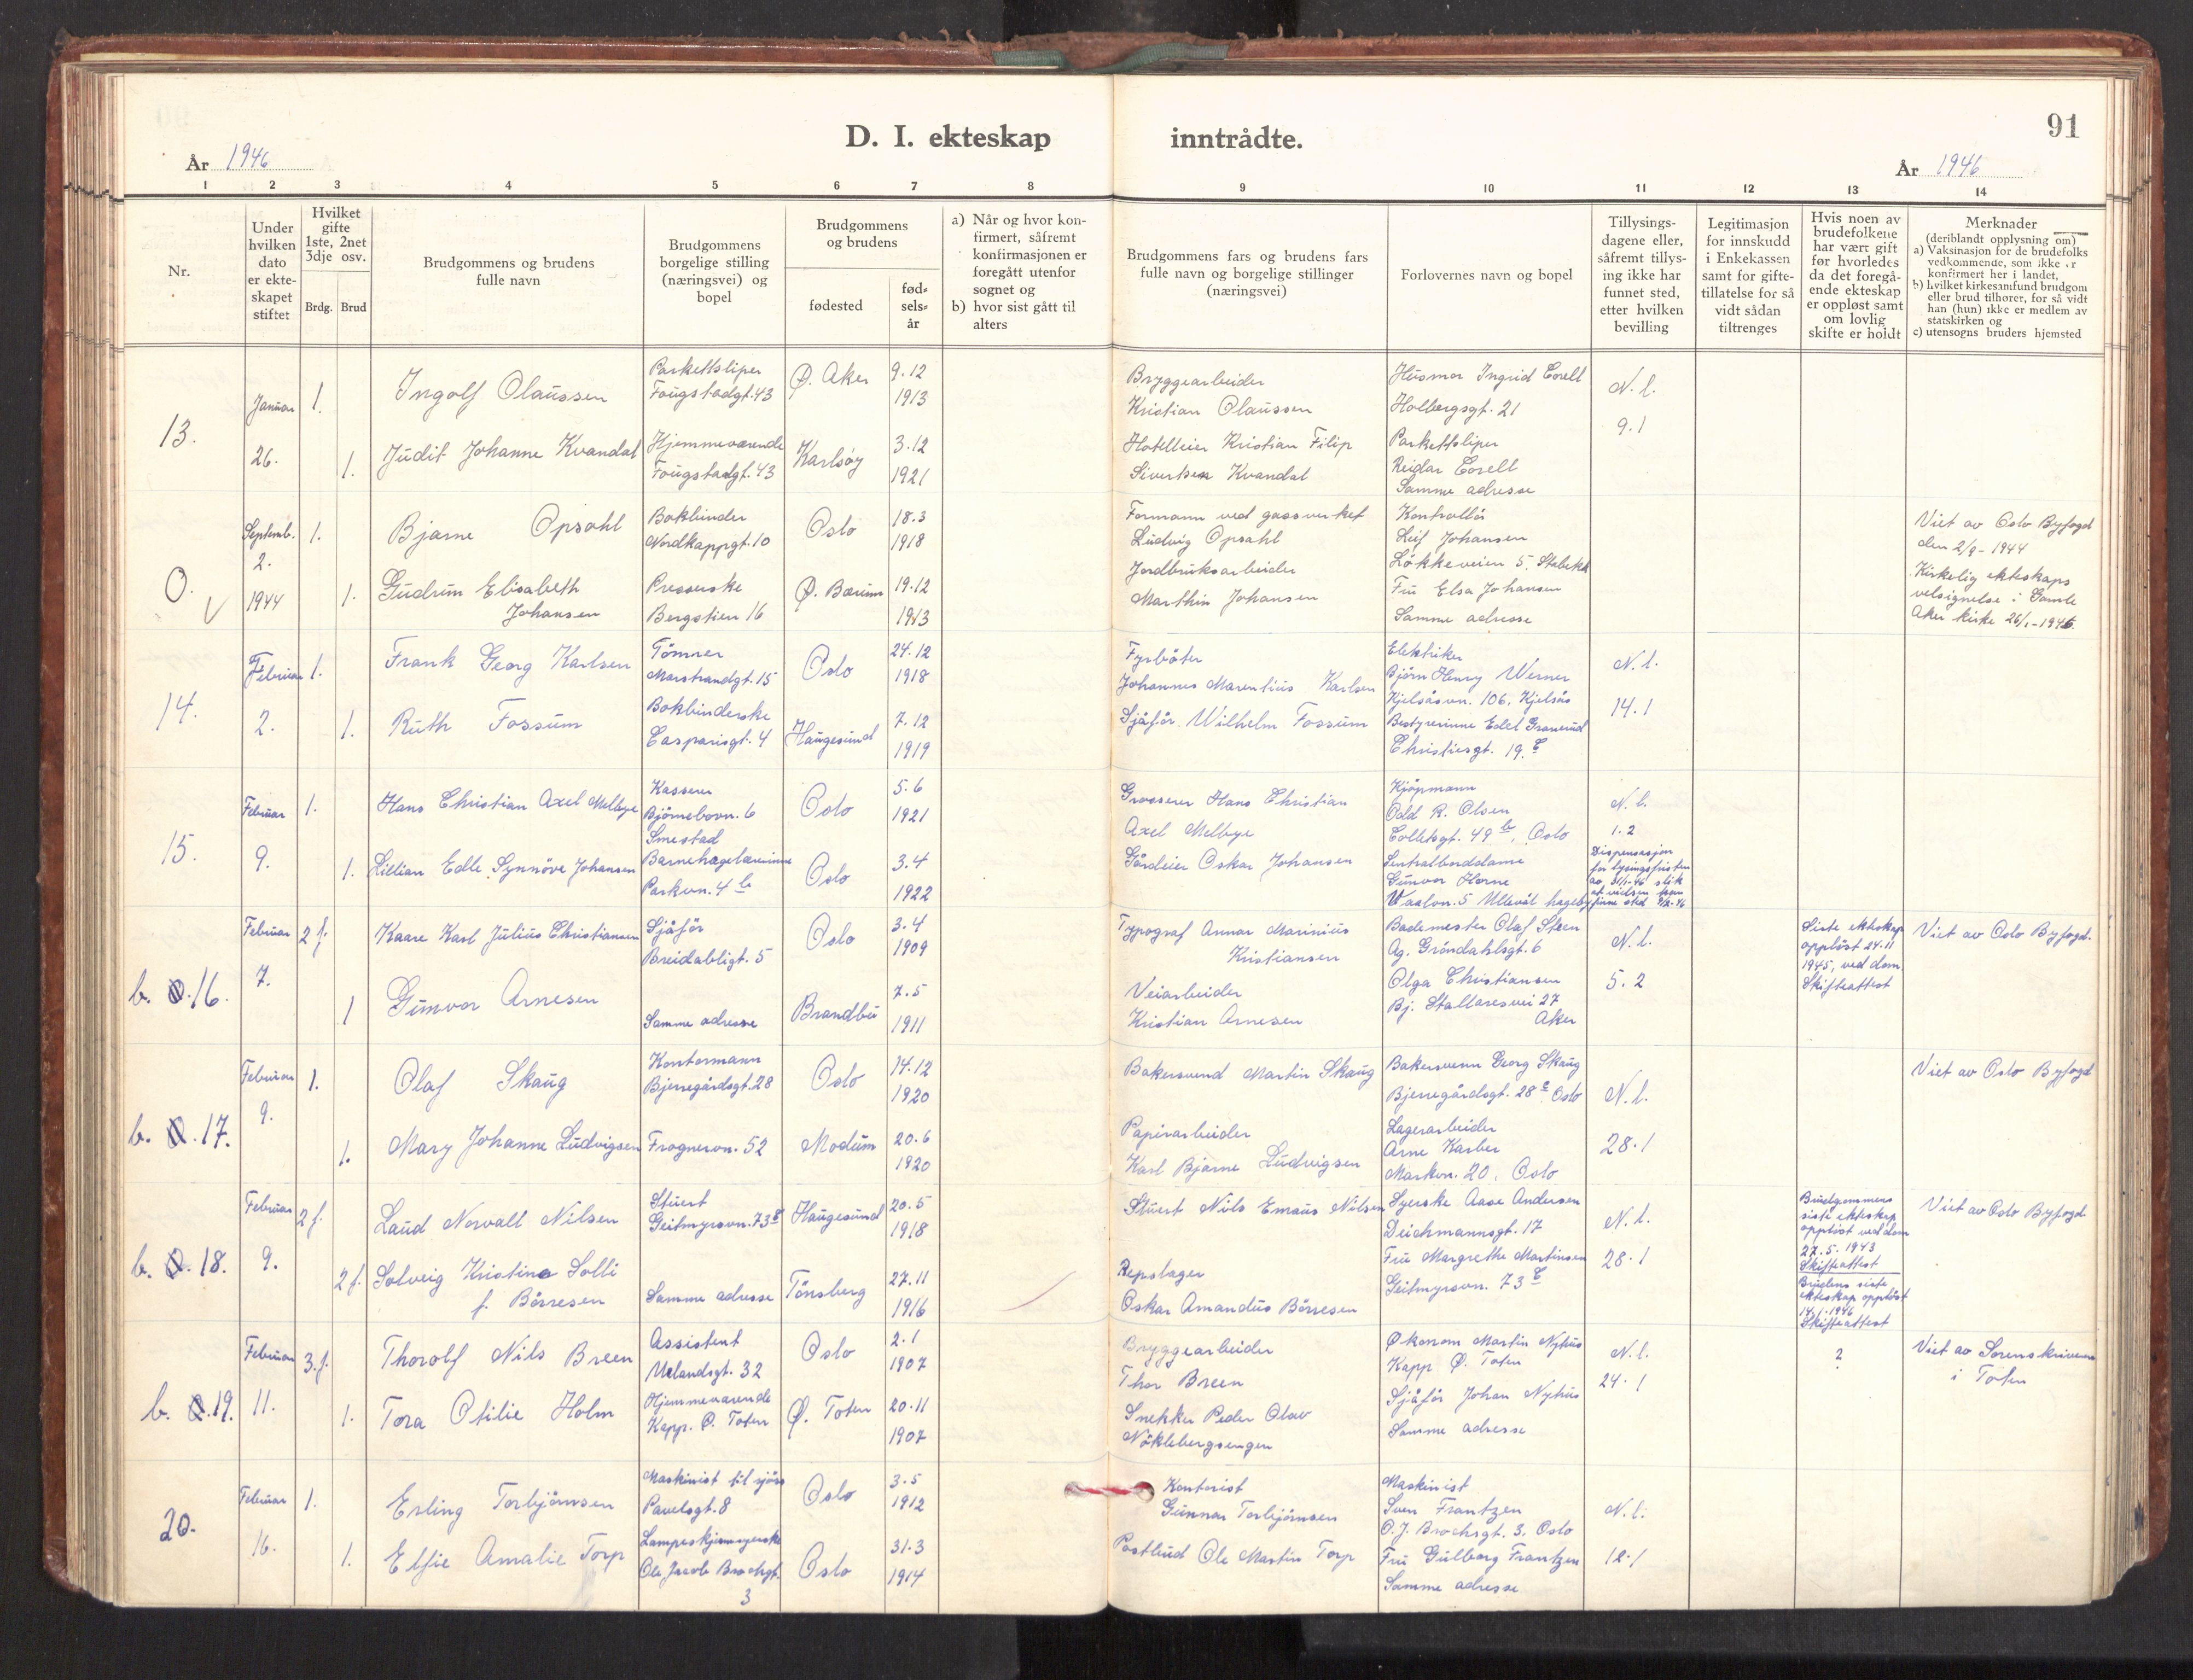 D. I. ekteskap inntrådte.
91
År 1946
År 1946
1 2 3 4 5 6 7 8 9 10 11 12 13 14
Nr.
Under
hvilken
dato
er ekte-
skapet
stiftet
Hvilket
gifte
1ste, 2net
3dje osv.
Brdg. Brud
Brudgommens og brudens
fulle navn
Brudgommens
borgelige stilling
(næringsvei) og
bopel
Brudgommens
og brudens
fødested
fød-
sels-
år
a) Når og hvor kon-
firmert, såfremt
konfirmasjonen er
foregått utenfor
sognet og
b) hvor sist gått til
alters
Brudgommens fars og brudens fars
fulle navn og borgelige stillinger
(næringsvei)
Forlovernes navn og bopel
Tillysings-
dagene eller,
såfremt tillys-
ing ikke har
funnet sted,
etter hvilken
bevilling
Legitimasjon
for innskudd
i Enkekassen
samt for gifte-
tillatelse for så
vidt sådan
tiltrenges
Hvis noen av
brudefolkene
har vært gift
før hvorledes
da det foregå-
ende ekteskap
er oppløst samt
om lovlig
skifte er holdt
Merknader
(deriblandt opplysning om)
a) Vaksinasjon for de brudefolks
vedkommende, som ikke er
konfirmert her i landet,
b) hvilket kirkesamfund brudgom
eller brud tilhører, for så vidt
han (hun) ikke er medlem av
statskirken og
c) utensogns bruders hjemsted
13.
Januar
26.
1.
Ingolf Olaussen
Parkettsliper
Fougstadgt. 43
Ø. Aker
9.12
1913
1.
Judit Johanne Kvandal
Hjemmeværende
Fougstadgt. 43
Karlsøy
3.12
1921
Bryggearbeider
Kristian Olaussen
Hotelleier Kristian Filip
Sivertsen Kvandal
Husmor Ingrid Corell
Holbergsgt. 21
Parkettsliper
Reidar Corell
Samme adresse
N. l.
9.1
0.
Septemb.
2.
1944
1.
Bjarne Opsahl
Bokbinder
Nordkappgt. 10
Oslo
18.3
1918
1.
Gudrun Elisabeth
Johansen
Presserske
Bergstien 16
Ø. Bærum
19.12
1913
Formann ved gassverket
Ludvig Opsahl
Jordbruksarbeider
Marthin Johansen
Kontrollør
Leif Johansen
Løkkeveien 5. Stabekk
Fru Elsa Johansen
Samme adresse
Viet av Oslo Byfogd
den 2/9-1944
Kirkelig ekteskaps
velsignelse i Gamle
Aker kirke 26/1-1946.
14.
Februar
2.
1.
Frank Georg Karlsen
Tømrer
Marstrandgt. 15
Oslo
24.12
1918
1.
Ruth Fossum
Bokbinderske
Casparisgt. 4
Haugesund
7.12
1919
Fyrbøter
Johannes Marentius Karlsen
Sjåfør Wilhelm Fossum
Elektriker
Bjørn Henry Werner
Kjelsåsvn. 106, Kjelsås
Bestyrerinne Edel Granerud
Christiesgt. 19.c
N. l.
14.1
15.
Februar
9.
1.
Hans Christian Axel Melbye
Kasserer
Bjørnebovn. 6
Smestad
Oslo
5.6
1921
1.
Lillian Edle Synnøve Johansen
Barnehagelærerinne
Parkvn. 4 b
Oslo
3.4
1922
Grosserer Hans Christian
Axel Melbye
Gårdeier Oskar Johansen
Kjøpmann
Odd R. Olsen
Colletsgt. 49 b, Oslo
Sentralborddame
Gunvor Horne
Vaalvn. 5 Ullevål hageby
N. l.
1.2
Dispensasjon
for lysingsfristen
av 31/1-46 slik
at vielsen kan
finne sted 9/2-46
b. 0. 16.
Februar
7.
2 f.
Kaare Karl Julius Christiansen
Sjåfør
Breidabligt. 5
Oslo
3.4
1909
1
Gunvor Arnesen
Samme adresse
Brandbu
7.5
1911
Typograf Annar Marinius
Kristiansen
Veiarbeider
Kristian Arnesen
Bademester Olaf Steen
Ag. Grøndahlsgt. 6
Olga Christiansen
Bj. Stallaresvei 27
Aker
N. l.
5.2
Siste ekteskap
oppløst 24.11
1945, ved dom
Skifteattest
Viet av Oslo Byfogd.
b. 0. 17.
Februar
9.
1.
Olaf Skaug
Kontormann
Bjerregårdsgt. 28
Oslo
14.12
1920
1.
Mary Johanne Ludvigsen
Frognervn. 52
Modum
20.6
1920
Bakersvend Martin Skaug
Papirarbeider
Karl Bjarne Ludvigsen
Bakersvenn Georg Skaug
Bjerregårdsgt. 28 c. Oslo
Lagerarbeider
Arne Karber
Markvn. 20, Oslo
N. l.
28.1
Viet av Oslo Byfogd
b. 0. 18.
Februar
9.
2 f.
Laud Norvall Nilsen
Stuert
Geitmyrsvn. 73 c
Haugesund
20.5
1918
2 f.
Solveig Kristine Solli
f. Børresen
Samme adresse
Tønsberg
27.11
1916
Stuert Nils Emaus Nilsen
Repslager
Oskar Amandus Børresen
Syerske Aase Andersen
Deichmannsgt. 17
Fru Margrethe Martinsen
Geitmyrsvn. 73 c
N. l.
28.1
Brudgommens
siste ekteskap
oppløst ved dom
27.5.1943
Skifteattest
Brudens siste
ekteskap oppløst
14.1.1946
Skifteattest
Viet av Oslo Byfogd
b. 0. 19.
Februar
11.
3. f.
Thorolf Nils Breen
Assistent
Uelandsgt. 32
Oslo
2.1
1907
1.
Tora Otilie Holm
Hjemmeværende
Kapp. Ø. Toten
Ø. Toten
20.11
1907
Bryggearbeider
Thor Breen
Snekker Peder Olav
Nøklebergsengen
Økonom Martin Nyhus
Kapp Ø. Toten
Sjåfør Johan Nyhus
Samme adresse
N. l.
24.1
?
Viet av Sorenskriveren
i Toten
20.
Februar
16.
1.
Erling Torbjørnsen
Maskinist til sjøss
Pavelsgt. 8
Oslo
3.5
1912
1.
Elfie Amalie Torp
Lampeskjermsyerske
Ole Jacob Brochsgt.
3
Oslo
31.3
1914
Kontorist
Gunnar Torbjørnsen
Postbud Ole Martin Torp
Maskinist
Sven Frantzen
O. J. Brochsgt. 3. Oslo
Fru Gulborg Frantzen
Samme adresse
N. l.
12.1